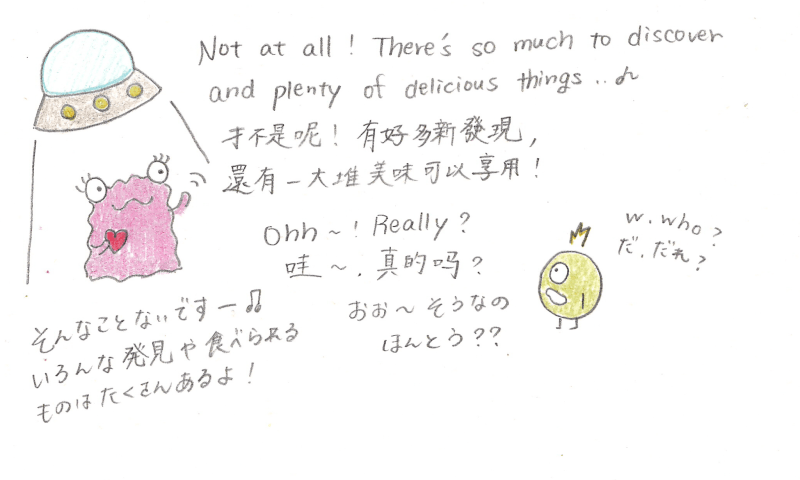 Not at all! There's so much to discover
and plenty of delicious things..♪
才不是呢！有好多新發現，
還有一大堆美味可以享用！
Ohh～! Really?
哇～. 真的吗？
w.who?
だ.だれ?
そんなことないですー♫
いろんな発見や食べられる
ものはたくさんあるよ！
おお～そうなの
ほんとう??